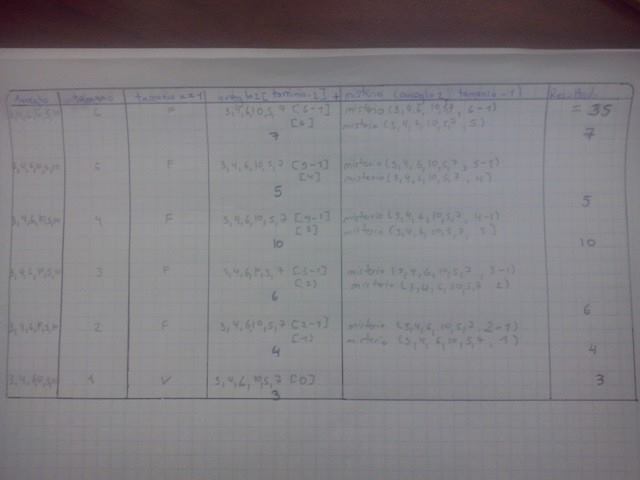 Arreglo tamaño tamaño == 1 arreglo2 [tamaño-1] + misterio (arreglo2, tamaño - 1) Resultado
6 F 3,4,6,10,5,7 [6-1] misterio (3,4,6,10,5,7, 6-1) = 35
misterio (3,4,6,10,5,7, 5)
7 7
5 F 3,4,6,10,5,7 [5-1] misterio (3,4,6,10,5,7, 5-1)
[4] misterio (3,4,6,10,5,7, 4)
5 5
4 F 3,4,6,10,5,7 [4-1] misterio (3,4,6,10,5,7, 4-1)
[3] misterio (3,4,6,10,5,7, 3)
10 10
3 F 3,4,6,10,5,7 [3-1] misterio (3,4,6,10,5,7, 3-1)
[2] misterio (3,4,6,10,5,7 2)
6 6
2 F 3,4,6,10,5,7 [2-1] misterio (3,4,6,10,5,7, 2-1)
[1] misterio (3,4,6,10,5,7, 1)
4 4
1 V 3,4,6,10,5,7 [0] 3
3